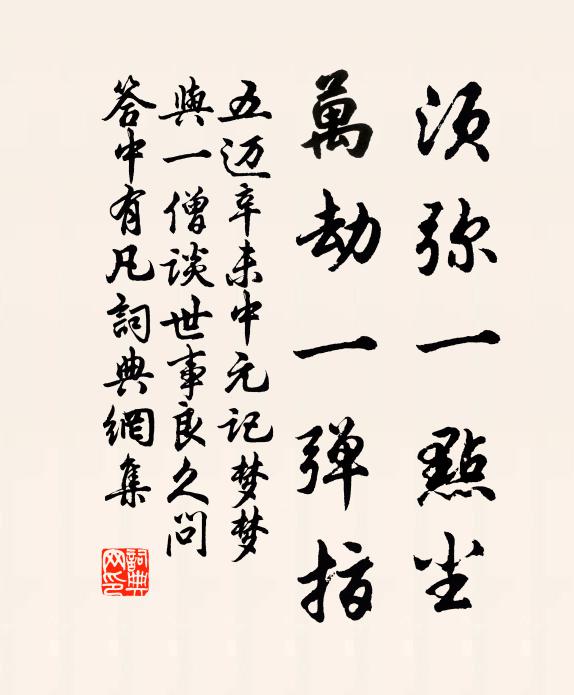 须弥一點尘
萬劫一弹指
五迈辛未中元记梦梦
與一僧談世事良久问
答中有凡詞典網集
詞典网印